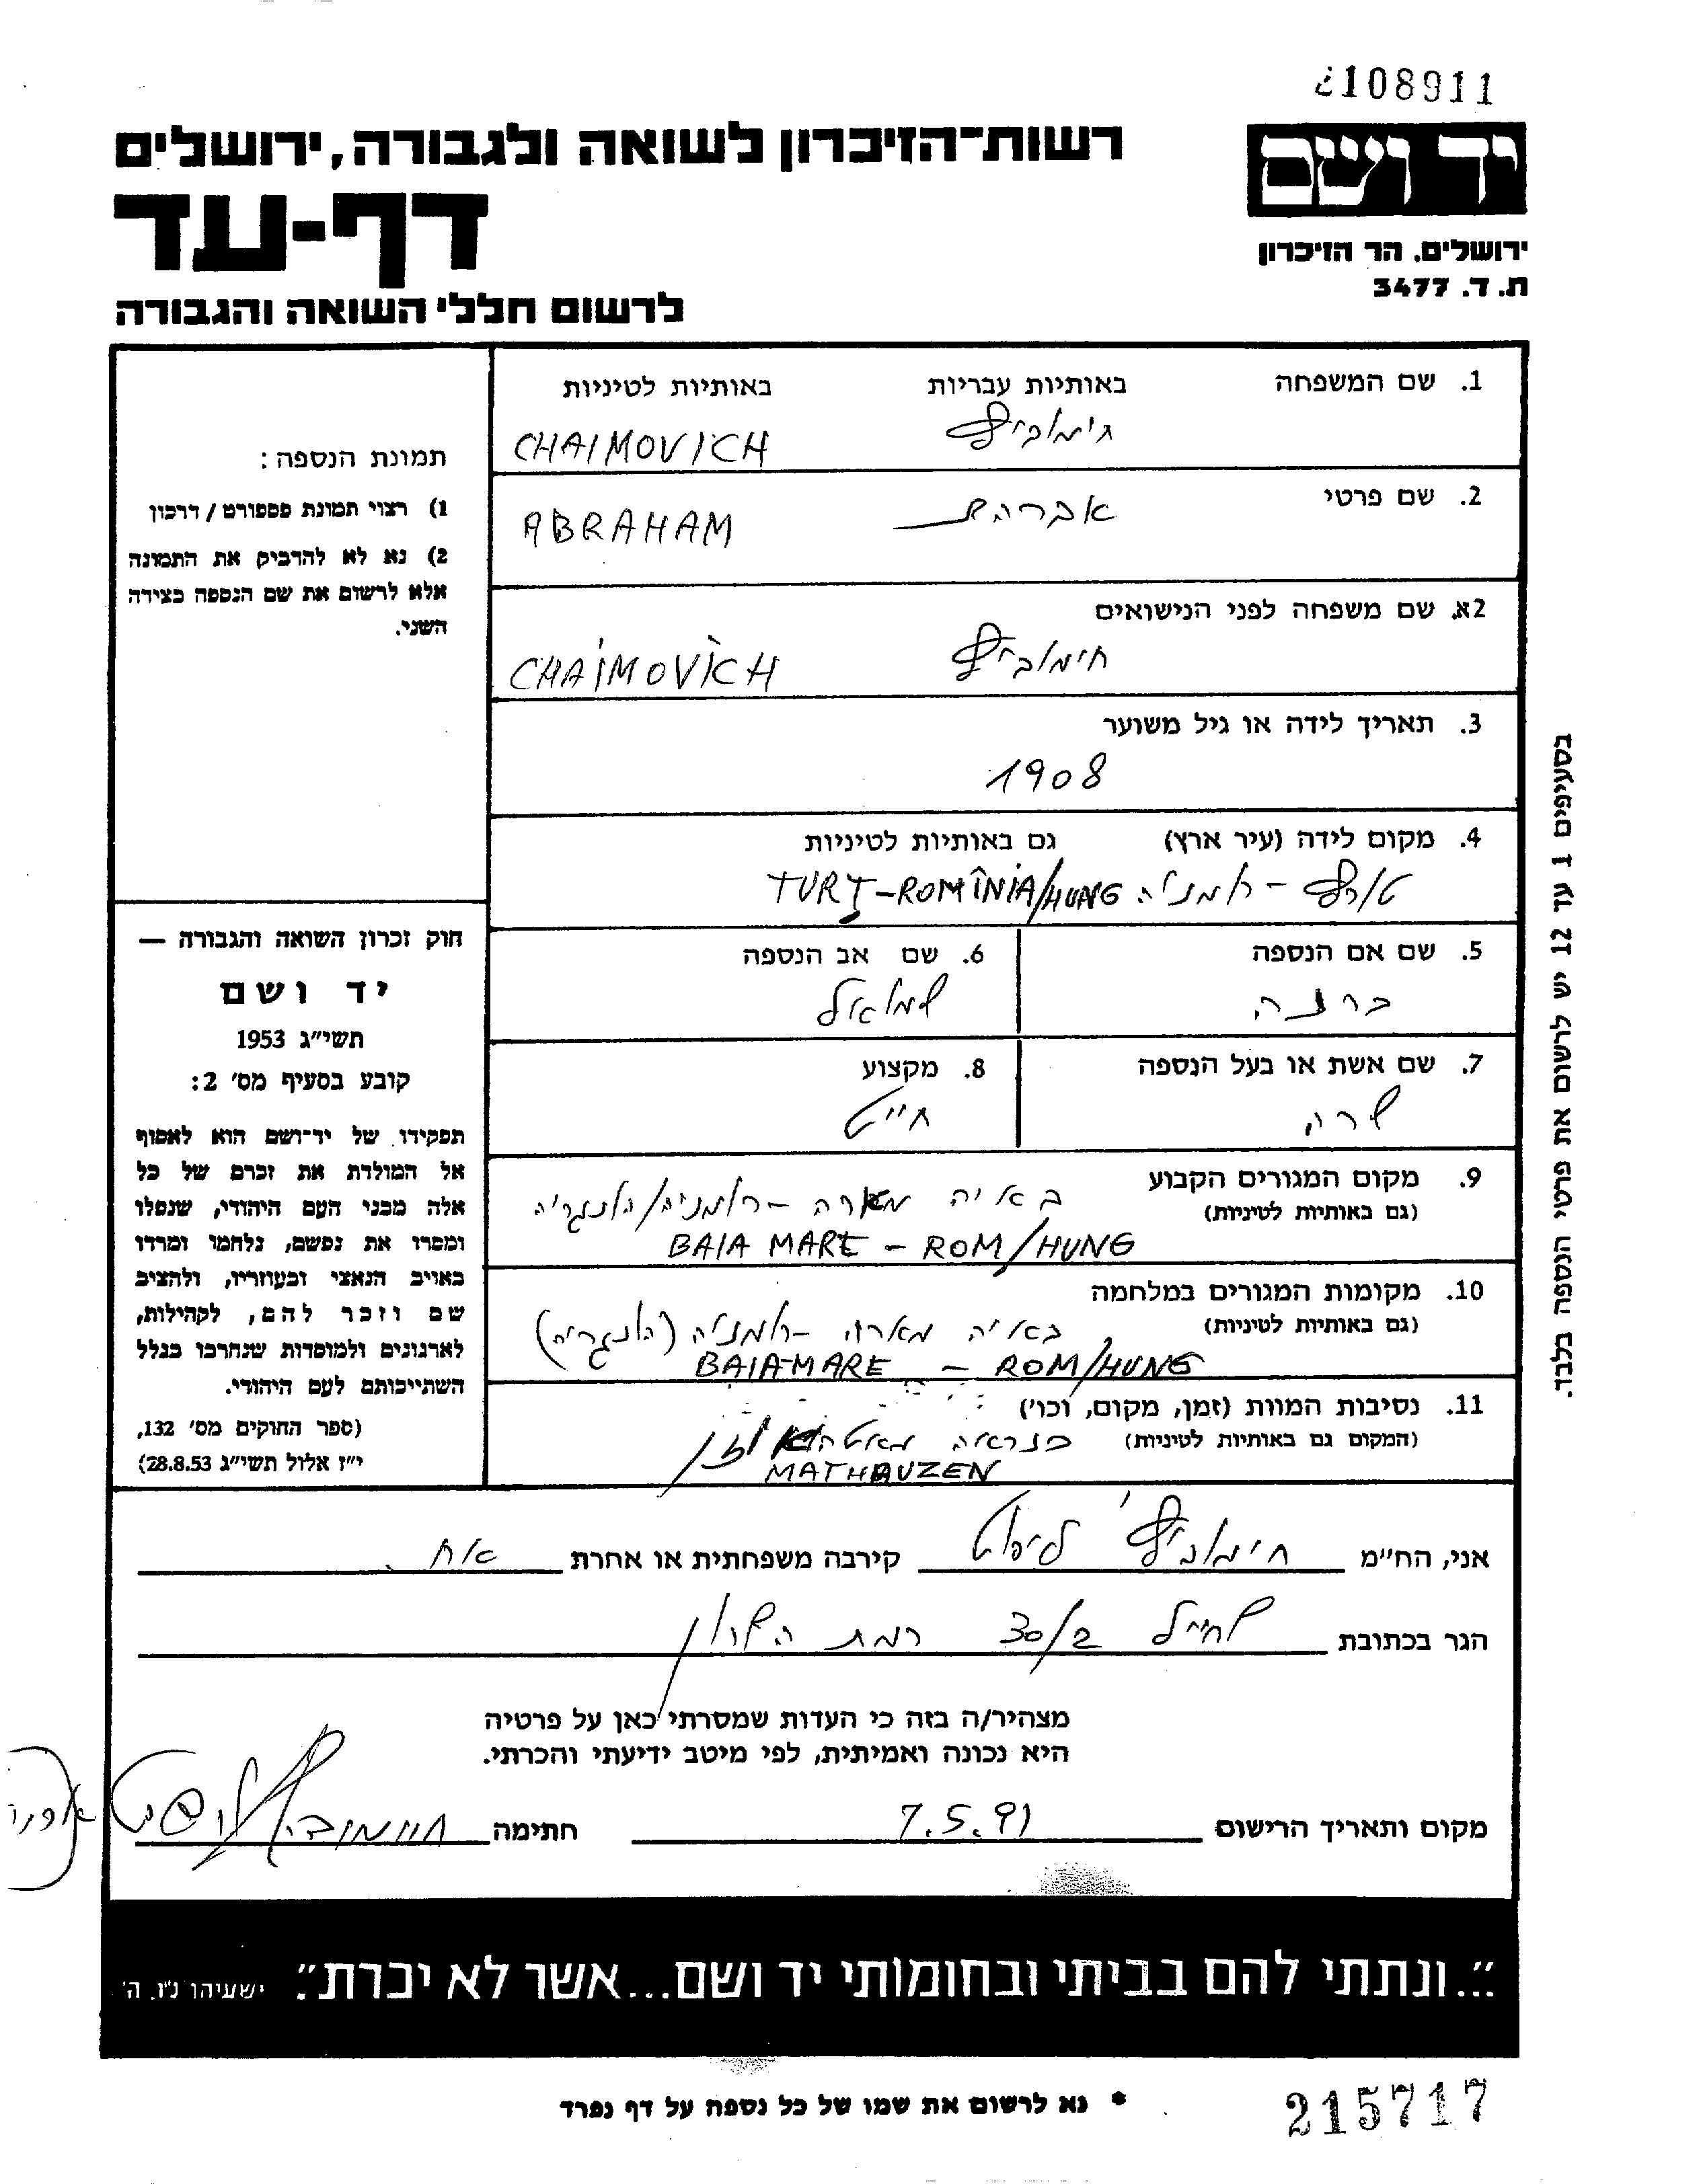 2108911
רשות־הזיכרון לשואה ולגבורה, ירושלים
יד ושם
דף-עד
ירושלים. הר הזיכרון
ת. ד. 3477
לרשום חללי השואה והגבורה
1. שם המשפחה באותיות עבריות באותיות לטיניות
חימוביץ CHAIMOVICH
2. שם פרטי אברהם ABRAHAM
2א. שם משפחה לפני הנישואים
חימוביץ CHAIMOVICH
3. תאריך לידה או גיל משוער
1908
4. מקום לידה (עיר ארץ) גם באותיות לטיניות
טורץ - רומניה TURȚ-ROMÎNIA/HUNG
5. שם אם הנספה 6. שם אב הנספה
שמואל
7. שם אשת או בעל הנספה 8. מקצוע
שרה חייט
9. מקום המגורים הקבוע
(גם באותיות לטיניות)
באיה מארה - רומניה/הונגריה
BAIA MARE - ROM/HUNG
10. מקומות המגורים במלחמה
(גם באותיות לטיניות)
באיה מארה - רומניה (הונגריה)
BAIA-MARE - ROM/HUNG
11. נסיבות המוות (זמן, מקום, וכו')
(המקום גם באותיות לטיניות)
כנראה
MATHAUZEN
תמונת הנספה:
1) רצוי תמונת פספורט / דרכון
2) נא לא להדביק את התמונה
אלא לרשום את שם הנספה בצידה
השני.
חוק זכרון השואה והגבורה —
יד ושם
תשי"ג 1953
קובע בסעיף מס' 2:
תפקידו של יד־ושם הוא לאסוף
אל המולדת את זכרם של כל
אלה מבני העם היהודי, שנפלו
ומסרו את נפשם, נלחמו ומרדו
באויב הנאצי ובעוזריו, ולהציב
שם וזכר להם, לקהילות,
לארגונים ולמוסדות שנחרבו בגלל
השתייכותם לעם היהודי.
(ספר החוקים מס' 132,
י"ז אלול תשי"ג 28.8.53)
בסעיפים 1 עד 12 יש לרשום את פרטי הנספה בלבד.
אני, הח"מ חימוביץ' ליפוט קירבה משפחתית או אחרת אח.
הגר בכתובת שחייל 30/2 רמת השרון
מצהיר/ה בזה כי העדות שמסרתי כאן על פרטיה
היא נכונה ואמיתית, לפי מיטב ידיעתי והכרתי.
מקום ותאריך הרישום 7.5.91 חתימה
"...ונתתי להם בביתי ובחומותי יד ושם...אשר לא יכרת". ישעיהו נ"ו, ה'
* נא לרשום את שמו של כל נספה על דף נפרד
215717